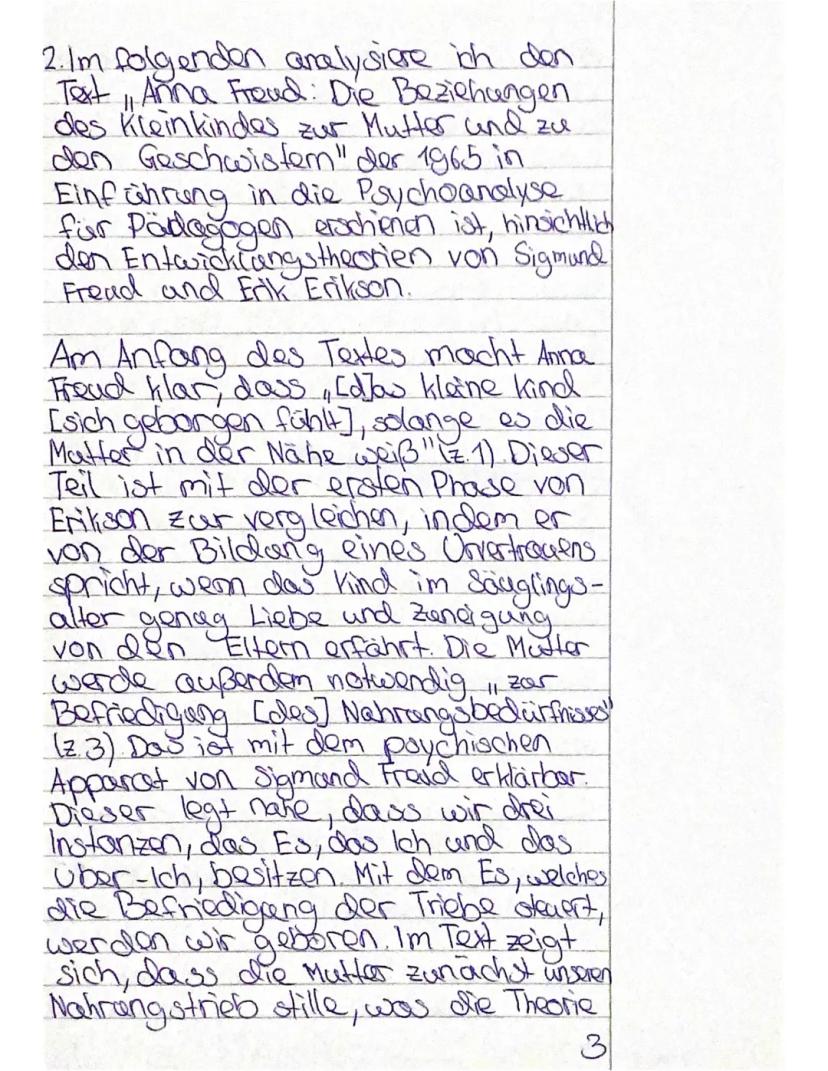 2. Im folgenden analysiere ich den
Text „Anna Freud: Die Beziehungen
des Kleinkindes zur Mutter und zu
den Geschwistern" der 1965 in
Einführung in die Psychoanalyse
für Pädagogen erschienen ist, hinsichtlich
den Entwicklungstheorien von Sigmund
Freud und Erik Erikson.
Am Anfang des Textes macht Anna
Freud klar, dass „[d]as kleine Kind
[sich geborgen fühlt], solange es die
Mutter in der Nähe weiß" (Z.1). Dieser
Teil ist mit der ersten Phase von
Erikson zur vergleichen, indem er
von der Bildung eines Urvertrauens
spricht, wenn das Kind im Säuglings-
alter genug Liebe und Zuneigung
von den Eltern erfährt. Die Mutter
werde außerdem notwendig „zur
Befriedigung [des] Nahrungsbedürfnisses"
(Z.3). Das ist mit dem psychischen
Apparat von Sigmund Freud erklärbar.
Dieser legt nahe, dass wir drei
Instanzen, das Es, das Ich und das
Über-Ich, besitzen. Mit dem Es, welches
die Befriedigung der Triebe steuert,
werden wir geboren. Im Text zeigt
sich, dass die Mutter zunächst unseren
Nahrungstrieb stille, was die Theorie
3